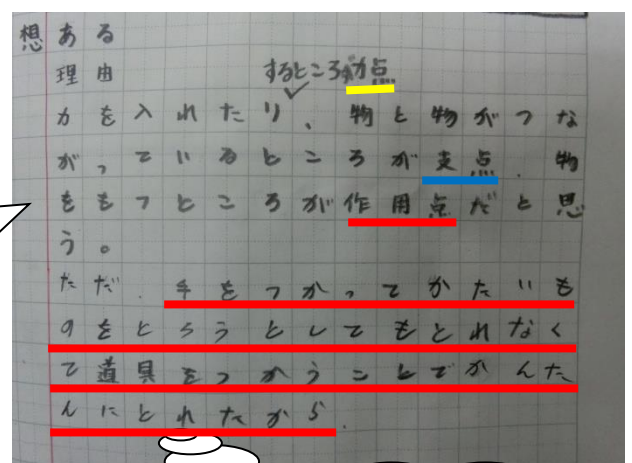 想 ある
理由
するところが力点
力を入れたり、物と物がつな
がっているところが支点、物
をもつところが作用点だと思
う。
ただ、手をつかってかたいも
のをとろうとしてもとれなく
て道具をつかうことでかんた
んにとれたから、